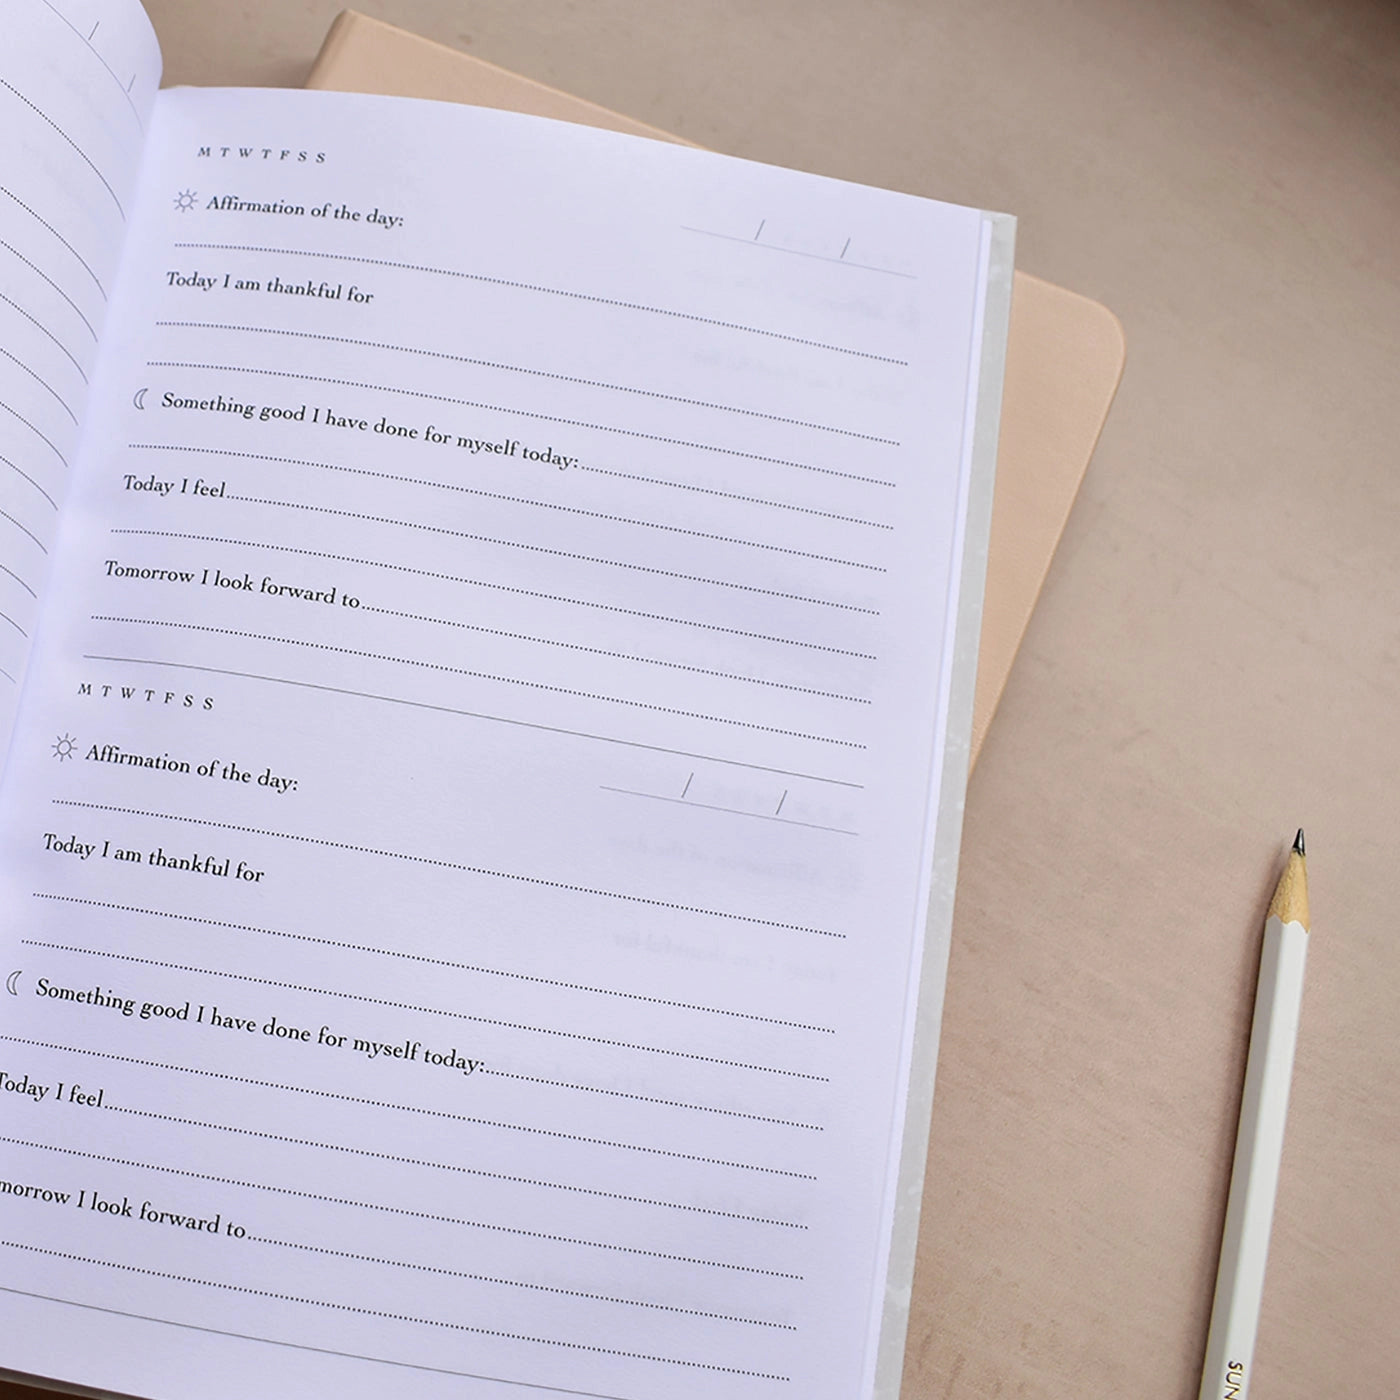 M T W T F S S
Affirmation of the day:
Today I am thankful for
Something good I have done for myself today:
Today I feel
Tomorrow I look forward to
M T W T F S S
Affirmation of the day:
Today I am thankful for
Something good I have done for myself today:
Today I feel
morrow I look forward to
SUN